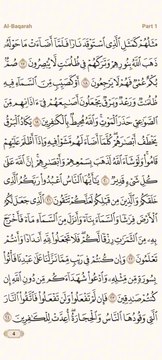 Al-Baqarah Part 1
مَثَلُهُمْ كَمَثَلِ ٱلَّذِى ٱسْتَوْقَدَ نَارًا فَلَمَّآ أَضَآءَتْ مَا حَوْلَهُۥ
ذَهَبَ ٱللَّهُ بِنُورِهِمْ وَتَرَكَهُمْ فِى ظُلُمَٰتٍ لَّا يُبْصِرُونَ ١٧ صُمٌّۢ
بُكْمٌ عُمْىٌ فَهُمْ لَا يَرْجِعُونَ ١٨ أَوْ كَصَيِّبٍ مِّنَ ٱلسَّمَآءِ فِيهِ
ظُلُمَٰتٌ وَرَعْدٌ وَبَرْقٌ يَجْعَلُونَ أَصَٰبِعَهُمْ فِىٓ ءَاذَانِهِم مِّنَ
ٱلصَّوَٰعِقِ حَذَرَ ٱلْمَوْتِ وَٱللَّهُ مُحِيطٌۢ بِٱلْكَٰفِرِينَ ١٩ يَكَادُ ٱلْبَرْقُ
يَخْطَفُ أَبْصَٰرَهُمْ كُلَّمَآ أَضَآءَ لَهُم مَّشَوْا۟ فِيهِ وَإِذَآ أَظْلَمَ عَلَيْهِمْ
قَامُوا۟ وَلَوْ شَآءَ ٱللَّهُ لَذَهَبَ بِسَمْعِهِمْ وَأَبْصَٰرِهِمْ إِنَّ ٱللَّهَ عَلَىٰ
كُلِّ شَىْءٍ قَدِيرٌ ٢٠ يَٰٓأَيُّهَا ٱلنَّاسُ ٱعْبُدُوا۟ رَبَّكُمُ ٱلَّذِى
خَلَقَكُمْ وَٱلَّذِينَ مِن قَبْلِكُمْ لَعَلَّكُمْ تَتَّقُونَ ٢١ ٱلَّذِى جَعَلَ لَكُمُ
ٱلْأَرْضَ فِرَٰشًا وَٱلسَّمَآءَ بِنَآءً وَأَنزَلَ مِنَ ٱلسَّمَآءِ مَآءً فَأَخْرَجَ
بِهِۦ مِنَ ٱلثَّمَرَٰتِ رِزْقًا لَّكُمْ فَلَا تَجْعَلُوا۟ لِلَّهِ أَندَادًا وَأَنتُمْ
تَعْلَمُونَ ٢٢ وَإِن كُنتُمْ فِى رَيْبٍ مِّمَّا نَزَّلْنَا عَلَىٰ عَبْدِنَا فَأْتُوا۟
بِسُورَةٍ مِّن مِّثْلِهِۦ وَٱدْعُوا۟ شُهَدَآءَكُم مِّن دُونِ ٱللَّهِ إِن
كُنتُمْ صَٰدِقِينَ ٢٣ فَإِن لَّمْ تَفْعَلُوا۟ وَلَن تَفْعَلُوا۟ فَٱتَّقُوا۟ ٱلنَّارَ
ٱلَّتِى وَقُودُهَا ٱلنَّاسُ وَٱلْحِجَارَةُ أُعِدَّتْ لِلْكَٰفِرِينَ ٢٤
4